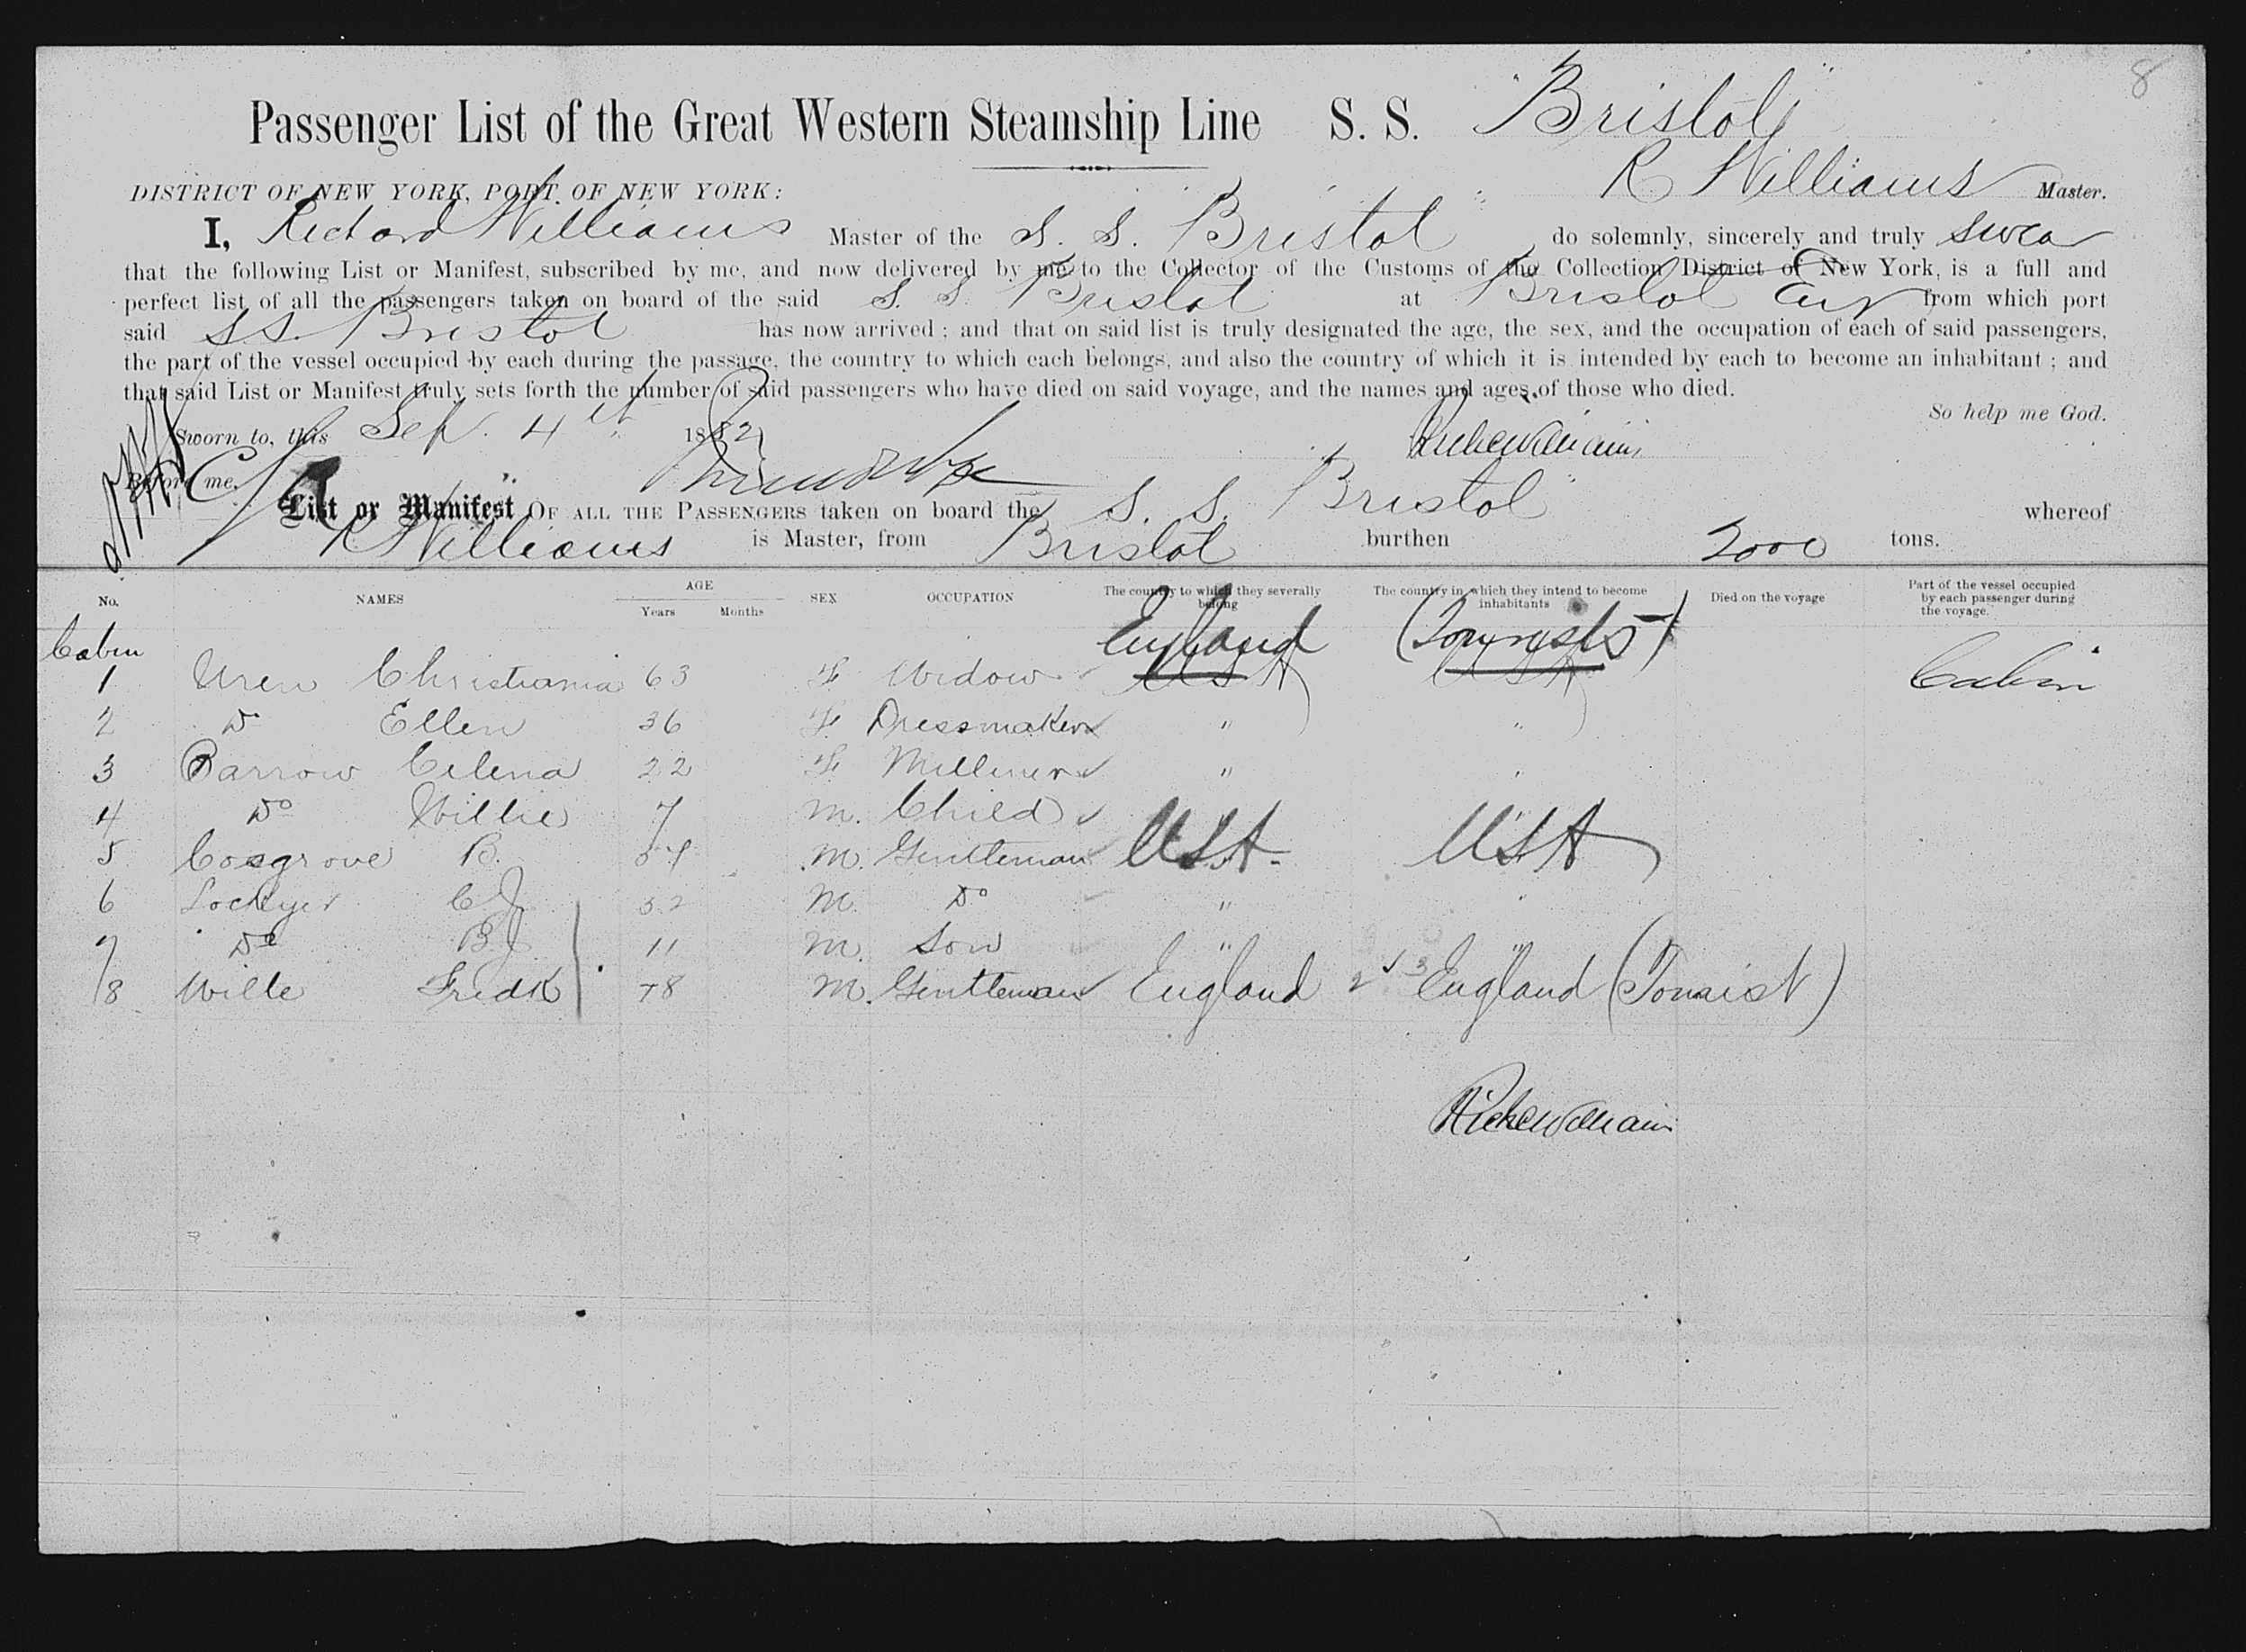 8
Passenger List of the Great Western Steamship Line S. S. "Bristol"
R Williams Master.
DISTRICT OF NEW YORK, PORT OF NEW YORK:
I, Richard Williams Master of the S. S. Bristol do solemnly, sincerely and truly swea
that the following List or Manifest, subscribed by me, and now delivered by me to the Collector of the Customs of the Collection District of New York, is a full and
perfect list of all the passengers taken on board of the said S. S. Bristol at Bristol Eng from which port
said S S. Bristol has now arrived ; and that on said list is truly designated the age, the sex, and the occupation of each of said passengers,
the part of the vessel occupied by each during the passage, the country to which each belongs, and also the country of which it is intended by each to become an inhabitant ; and
that said List or Manifest truly sets forth the number of said passengers who have died on said voyage, and the names and ages of those who died.
So help me God.
Sworn to, this Sep. 4th 1882
Before me,
List or Manifest OF ALL THE PASSENGERS taken on board the S. S. Bristol whereof
R Williams is Master, from Bristol burthen 2000 tons.
No. NAMES AGE Years Months SEX OCCUPATION The country to which they severally belong The country in which they intend to become inhabitants Died on the voyage Part of the vessel occupied by each passenger during the voyage.
Cabin England (Tourists)
1 Uren Christiania 63 F Widow USA USA Cabin
2 Do Ellen 36 F Dressmaker " "
3 Barrow Celena 22 F Milliner " "
4 Do Willie 7 M. Child " "
5 Cosgrove B. M. Gentleman USA USA
6 Lockyer C J 32 M. Do " "
7 Do B J 11 M. Son " "
8 Wille Fredk 78 M. Gentleman England England (Tourist)